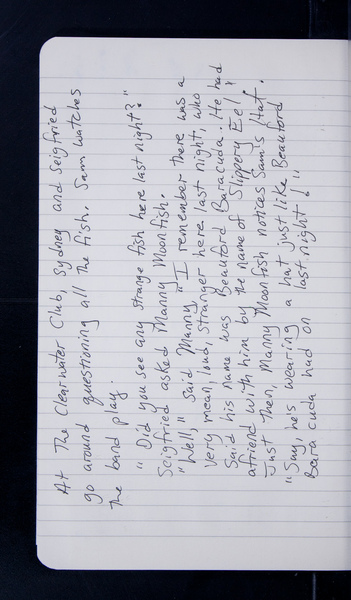 At The Clearwater Club, Sydney and Seigfried
go around questioning all the fish. Sam watches
the band play.
"Did you see any strange fish here last night?"
Seigfried asked Manny Moonfish.
"Well," said Manny, "I remember there was a
very mean, loud, stranger here last night, who
said his name was Beauford Baracuda. He had
afriend with him by the name of Slippery Eel"
Just then, Manny Moonfish notices Sam's Hat.
"Say, he's wearing a hat just like Beauford
Bara cuda had on last night!"